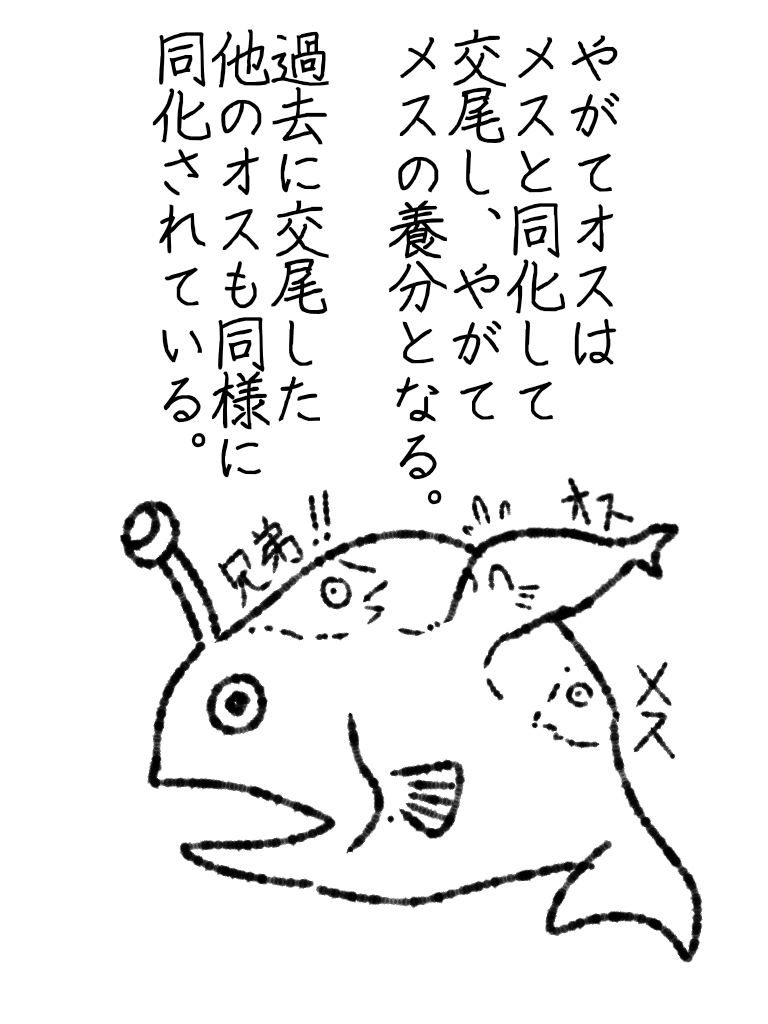 やがてオスは
メスと同化して
交尾し、やがて
メスの養分となる。
過去に交尾した
他のオスも同様に
同化されている。
オス
兄弟!!
メス